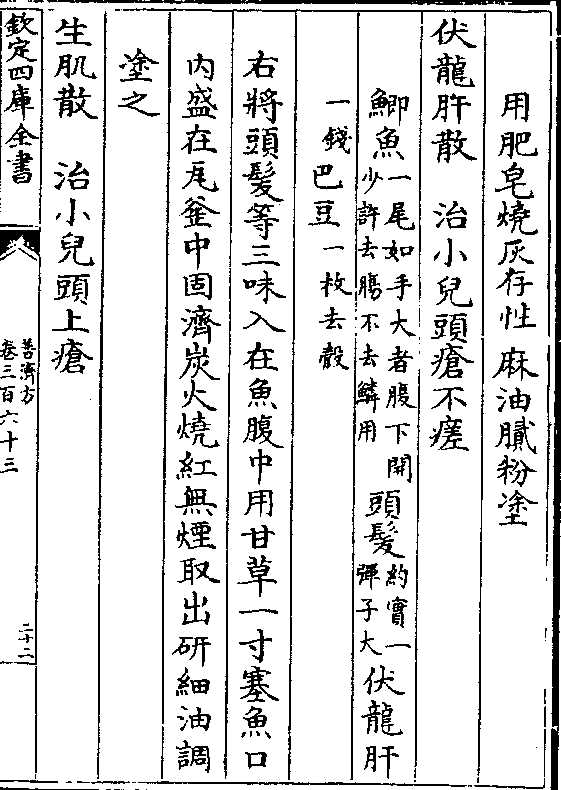 用肥皂燒灰存性 麻油膩粉塗
伏龍肝散 治小兒頭瘡不瘥
鯽魚一尾如手大者腹下開少許去腸不去鱗用頭髮約實一彈子大伏龍肝
一錢巴豆一枚去殼
右將頭髮等三味入在魚腹中用甘草一寸塞魚口
内盛在瓦釜中固濟炭火燒紅無煙取出研細油調
塗之
生肌散 治小兒頭上瘡
欽定四庫全書
普濟方
卷三百六十三
二十二